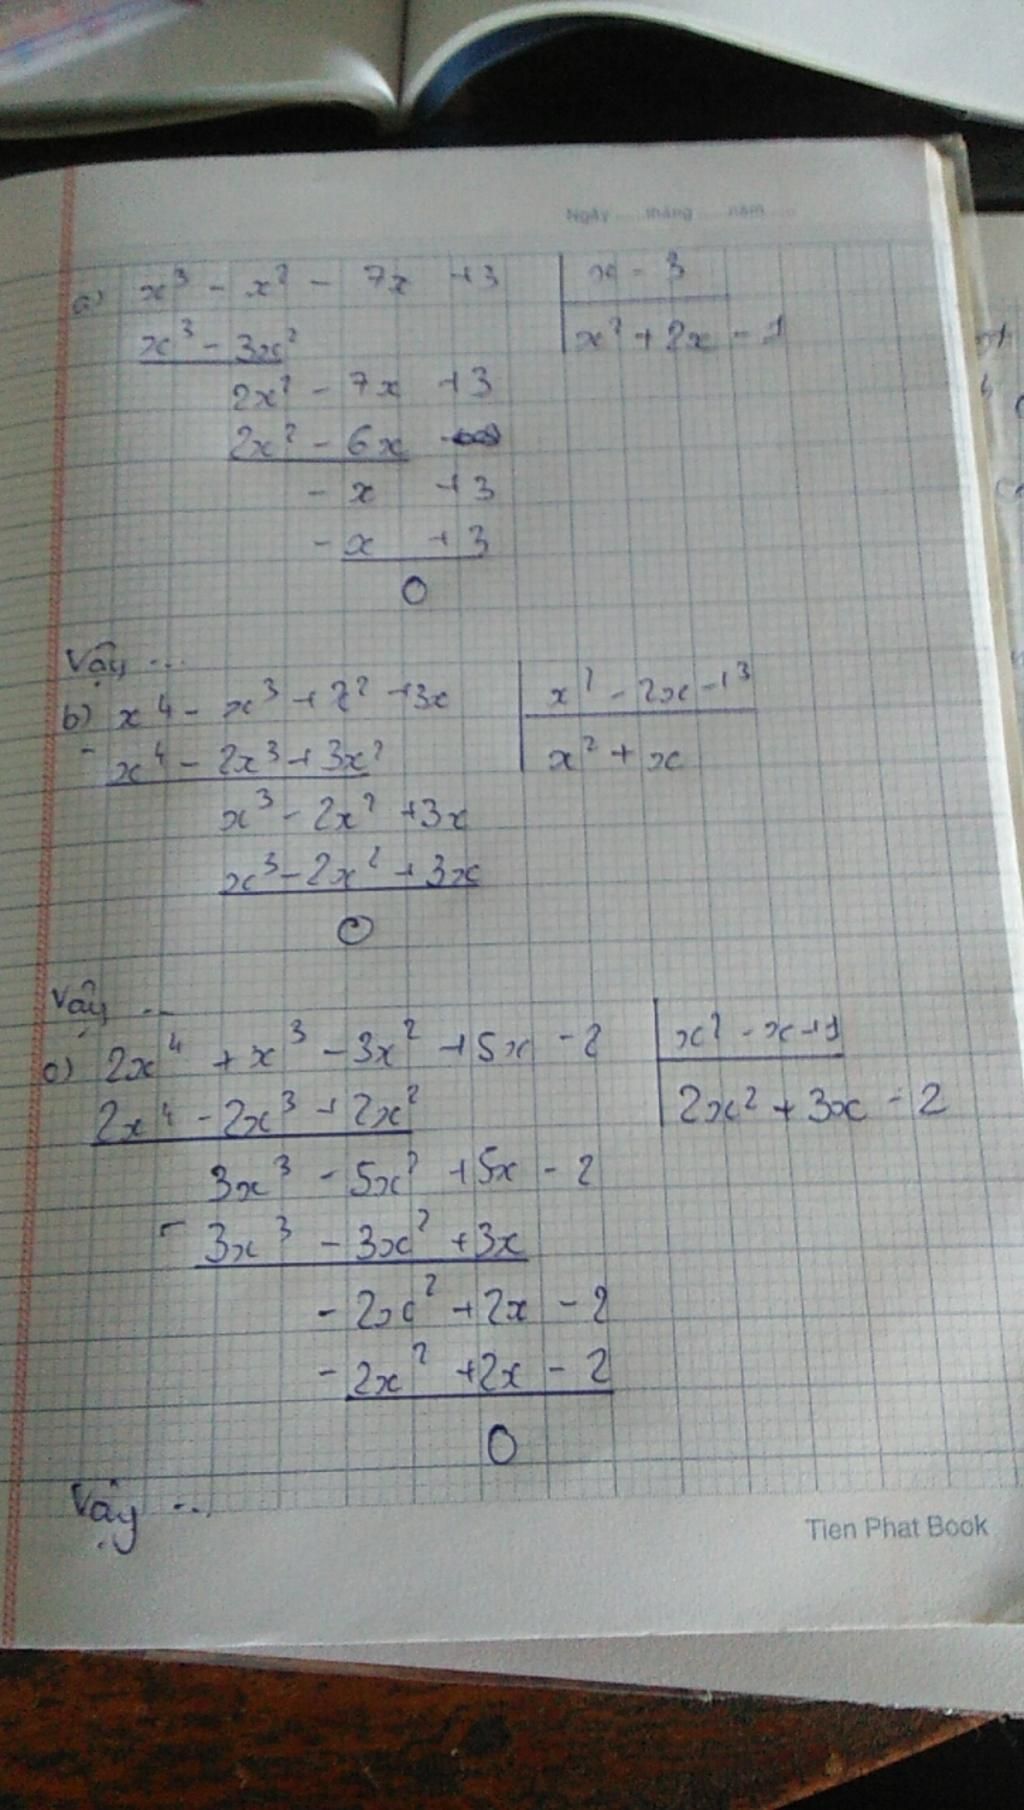 Ngày tháng năm
a) x³ - x² - 7x + 3 | x - 3
x³ - 3x² | x² + 2x - 1
2x² - 7x + 3
2x² - 6x
- x + 3
- x + 3
0
Vậy ...
b) x⁴ - x³ + x² + 3x | x² - 2x + 3
- x⁴ - 2x³ + 3x² | x² + x
x³ - 2x² + 3x
x³ - 2x² + 3x
0
Vậy ...
c) 2x⁴ + x³ - 3x² + 5x - 2 | x² - x + 1
2x⁴ - 2x³ + 2x² | 2x² + 3x - 2
3x³ - 5x² + 5x - 2
- 3x³ - 3x² + 3x
- 2x² + 2x - 2
- 2x² + 2x - 2
0
Vậy ...
Tien Phat Book